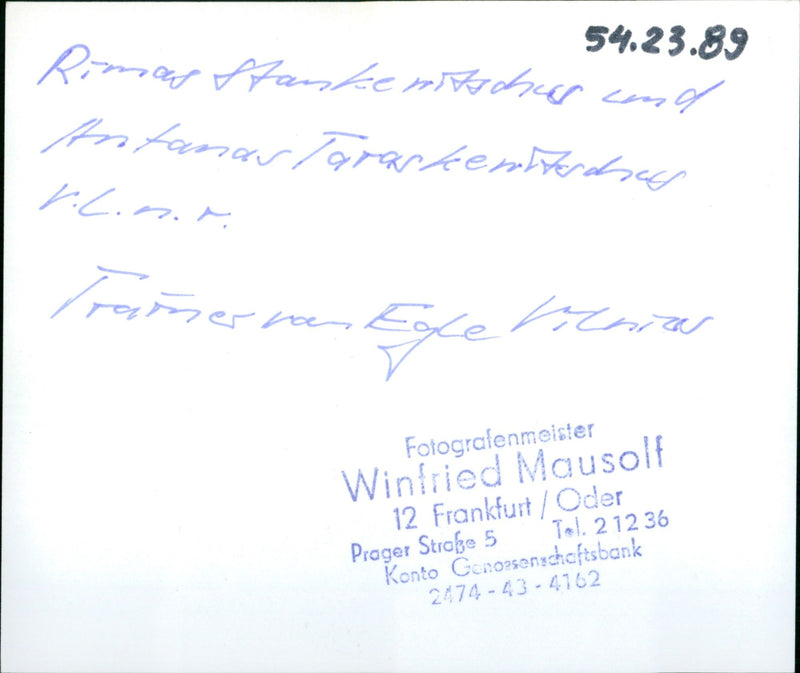 54.23.89
Rimas Stankewitschus und
Antanas Taraskewitschus
v.l.n.r.
Trainer von Egle Vilnius
Fotografenmeister
Winfried Mausolf
12 Frankfurt / Oder
Prager Straße 5 Tel. 21236
Konto Genossenschaftsbank
2474-43-4162